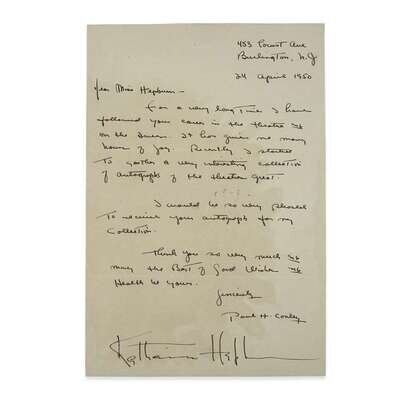 453 Locust Ave
Burlington, N.J
24 April 1950
Dear Miss Hepburn -
For a very long time I have
followed your career in the theatre
on the screen. It has given me many
hours of joy. Recently I started
to gather a very interesting collection
of autographs of the theater great
I would be so very pleased
to receive your autograph for my
Collection.
Thank you so very much
may the Best of Good Wishes
Health be yours.
Sincerely
Paul H. Conley
Katharine Hepburn